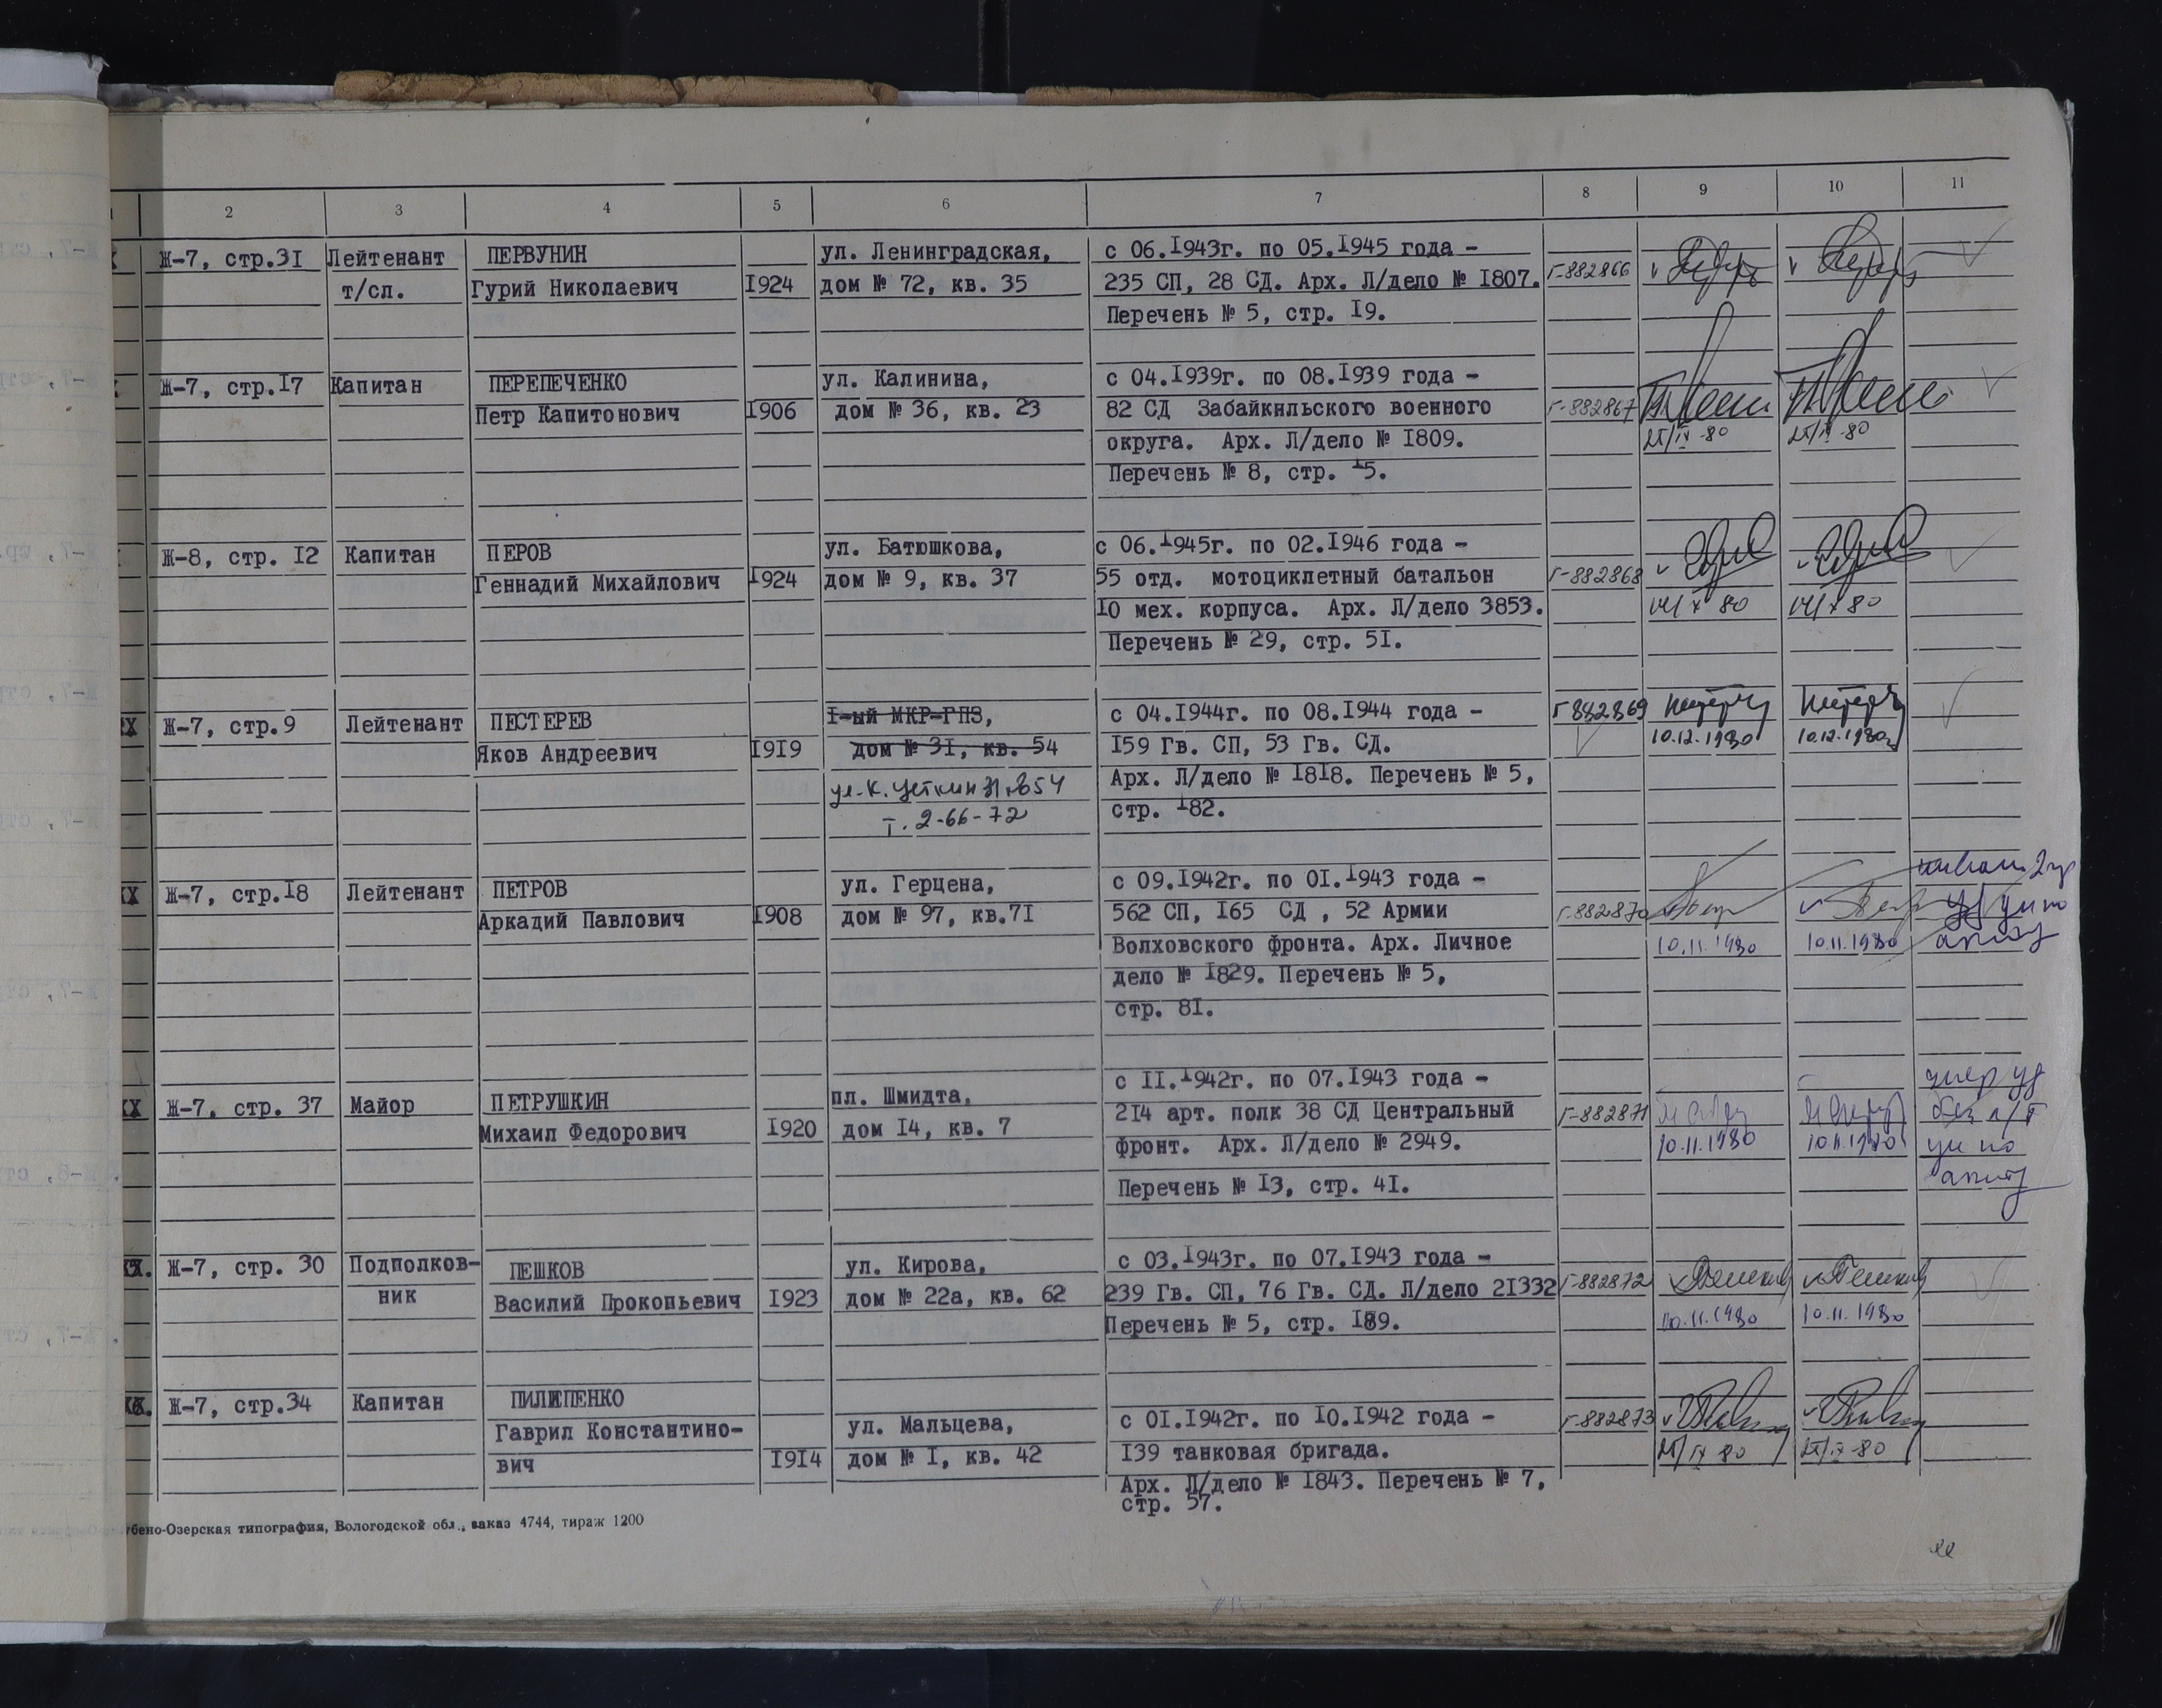 2 3 4 5 6 7 8 9 10 11
Ж-7, стр.31 Лейтенант ПЕРВУНИН ул. Ленинградская, с 06.1943г. по 05.1945 года -
т/сл. Гурий Николаевич 1924 дом № 72, кв. 35 235 СП, 28 СД. Арх. Л/дело № 1807. Г-882866
Перечень № 5, стр. 19.
Ж-7, стр.17 Капитан ПЕРЕПЕЧЕНКО ул. Калинина, с 04.1939г. по 08.1939 года -
Петр Капитонович 1906 дом № 36, кв. 23 82 СД Забайкильского военного Г-882867
округа. Арх. Л/дело № 1809. 25/IX-80 25/IX-80
Перечень № 8, стр. 15.
Ж-8, стр. 12 Капитан ПЕРОВ ул. Батюшкова, с 06.1945г. по 02.1946 года -
Геннадий Михайлович 1924 дом № 9, кв. 37 55 отд. мотоциклетный батальон Г-882868
10 мех. корпуса. Арх. Л/дело 3853. 14/X 80 14/X 80
Перечень № 29, стр. 51.
Ж-7, стр.9 Лейтенант ПЕСТЕРЕВ 1-ый МКР-ГПЗ, с 04.1944г. по 08.1944 года - Г 882869
Яков Андреевич 1919 дом № 31, кв. 54 159 Гв. СП, 53 Гв. СД. 10.12.1980 10.12.1980г
ул. К. Цеткин 31 кв54 Арх. Л/дело № 1818. Перечень № 5,
т. 2-66-72 стр. 182.
Ж-7, стр.18 Лейтенант ПЕТРОВ ул. Герцена, с 09.1942г. по 01.1943 года -
Аркадий Павлович 1908 дом № 97, кв.71 562 СП, 165 СД , 52 Армии Г-882870
Волховского фронта. Арх. Личное 10.11.1980 10.11.1980
дело № 1829. Перечень № 5,
стр. 81.
с 11.1942г. по 07.1943 года - умер уд
Ж-7, стр. 37 Майор ПЕТРУШКИН пл. Шмидта, 214 арт. полк 38 СД Центральный Г-882871
Михаил Федорович 1920 дом 14, кв. 7 фронт. Арх. Л/дело № 2949. 10.11.1980 10.11.1980
Перечень № 13, стр. 41.
Ж-7, стр. 30 Подполков- ПЕШКОВ ул. Кирова, с 03.1943г. по 07.1943 года -
ник Василий Прокопьевич 1923 дом № 22а, кв. 62 239 Гв. СП, 76 Гв. СД. Л/дело 21332 Г-882872 Пешков Пешков
Перечень № 5, стр. 189. 10.11.1980 10.11.1980
Ж-7, стр.34 Капитан ПИЛИПЕНКО
Гаврил Константино- ул. Мальцева, с 01.1942г. по 10.1942 года - Г-882873
вич 1914 дом № 1, кв. 42 139 танковая бригада. 25/IX 80 25/IX-80
Арх. Л/дело № 1843. Перечень № 7,
стр. 57.
бено-Озерская типография, Вологодской обл., заказ 4744, тираж 1200